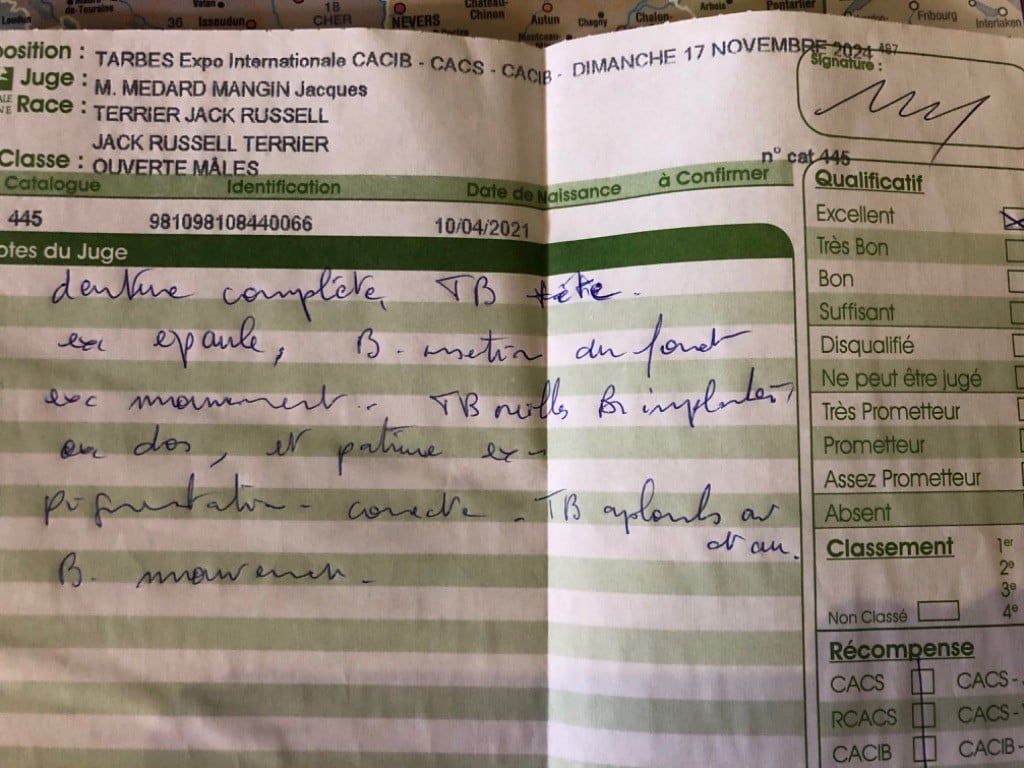 Loudun de-Touraine Vatan Issoudun 36 18 CHER NEVERS Château-Chinon Autun Chagny Chalon- Arbois Pontarlier Fribourg Interlaken
position : TARBES Expo Internationale CACIB - CACS - CACIB - DIMANCHE 17 NOVEMBRE 2024 487
Juge : M. MEDARD MANGIN Jacques
Race : TERRIER JACK RUSSELL
JACK RUSSELL TERRIER
Classe : OUVERTE MÂLES
Signature :
n° cat 445
Catalogue Identification Date de Naissance à Confirmer
445 981098108440066 10/04/2021
otes du Juge
denture complète, TB tête.
exc epaule, B. du fouet
exc mouvement - TB oreilles Bn implantées,
dos, et poitrine ex -
pigmentation - correcte - TB aplombs av
et arr.
B. mouvement -
Qualificatif
Excellent
Très Bon
Bon
Suffisant
Disqualifié
Ne peut être jugé
Très Prometteur
Prometteur
Assez Prometteur
Absent
Classement 1er
2e
3e
Non Classé 4e
Récompense
CACS CACS-
RCACS CACS-
CACIB CACIB-